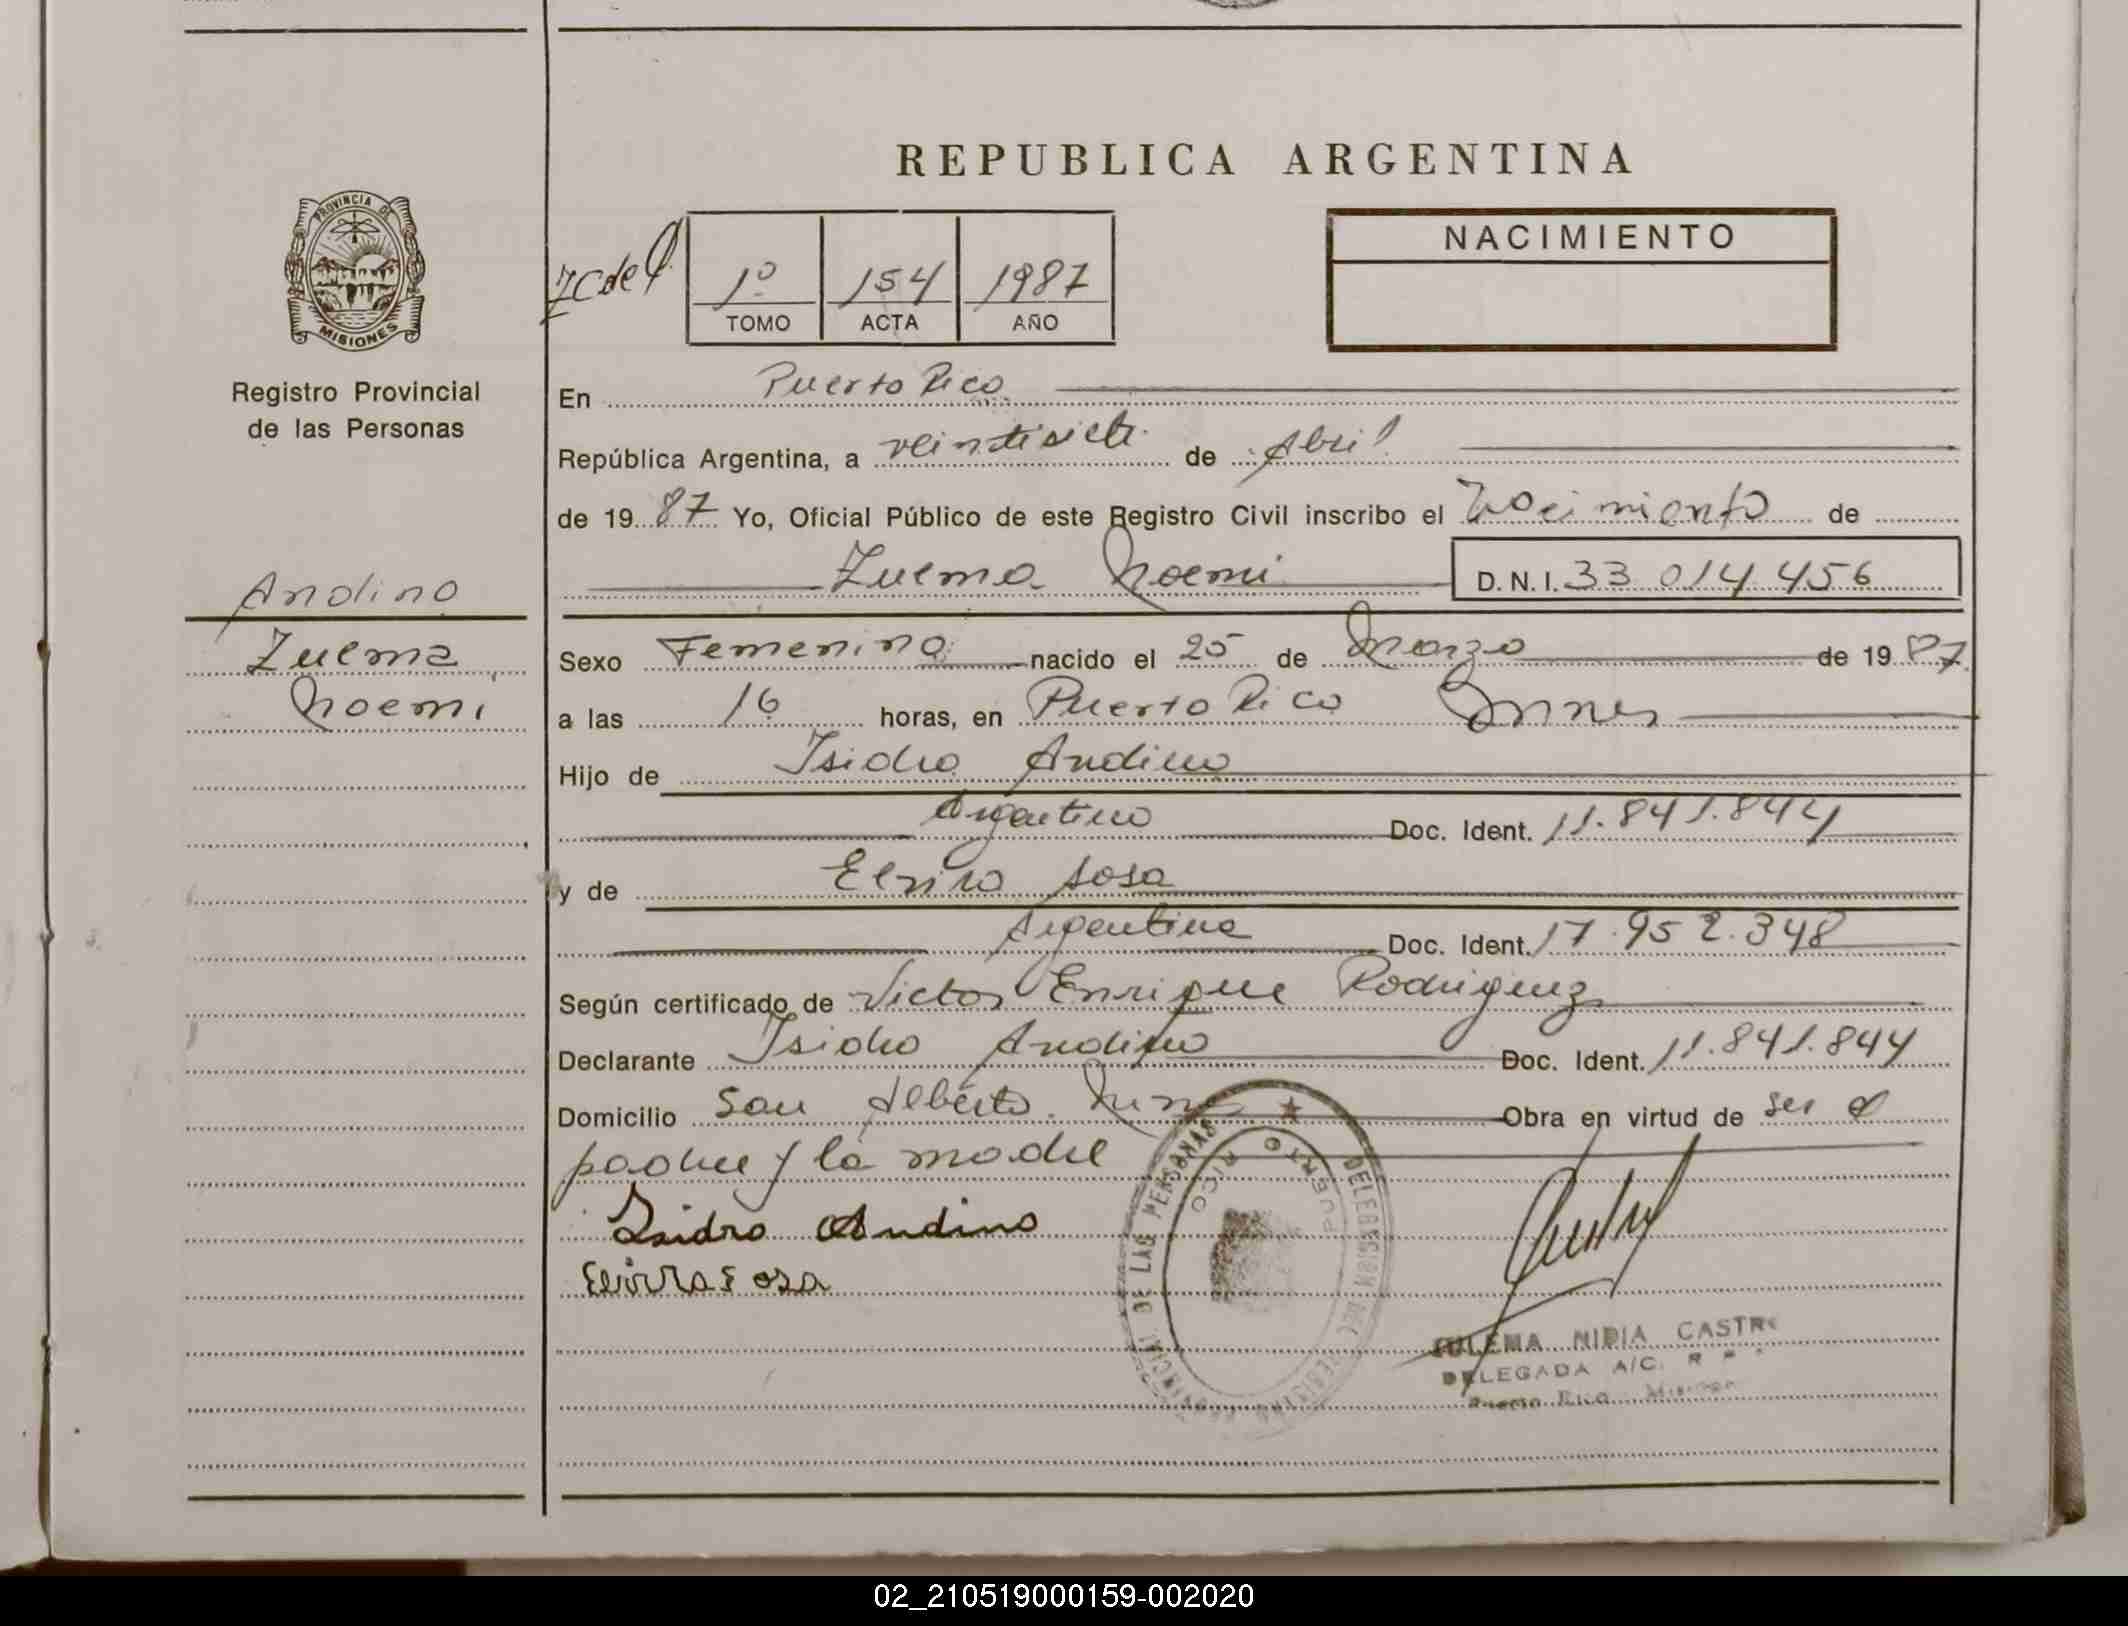 REPUBLICA ARGENTINA
PROVINCIA DE
MISIONES
Registro Provincial
de las Personas
Andino
Zulma
Noemi
1º 154 1987
TOMO ACTA AÑO
NACIMIENTO
En Puerto Rico
República Argentina, a veintisiete de Abril
de 1987 Yo, Oficial Público de este Registro Civil inscribo el Nacimiento de
Zulma Noemi D.N.I. 33 014 456
Sexo Femenino nacido el 25 de Marzo de 1987
a las 16 horas, en Puerto Rico Mnes
Hijo de Isidro Andino
Argentino Doc. Ident. 11.841.844
y de Sosa
Argentina Doc. Ident. 17.952.348
Según certificado de Victor Enrique Rodriguez
Declarante Isidro Andino Doc. Ident. 11.841.844
Domicilio San Alberto Mnes Obra en virtud de ser el
padre y la madre
Isidro Andino
Sosa
DELEGACION DEL REGISTRO PROVINCIAL DE LAS PERSONAS
PUERTO RICO
NIDIA CASTRO
DELEGADA A/C. R
Puerto Rico Misiones
02_210519000159-002020